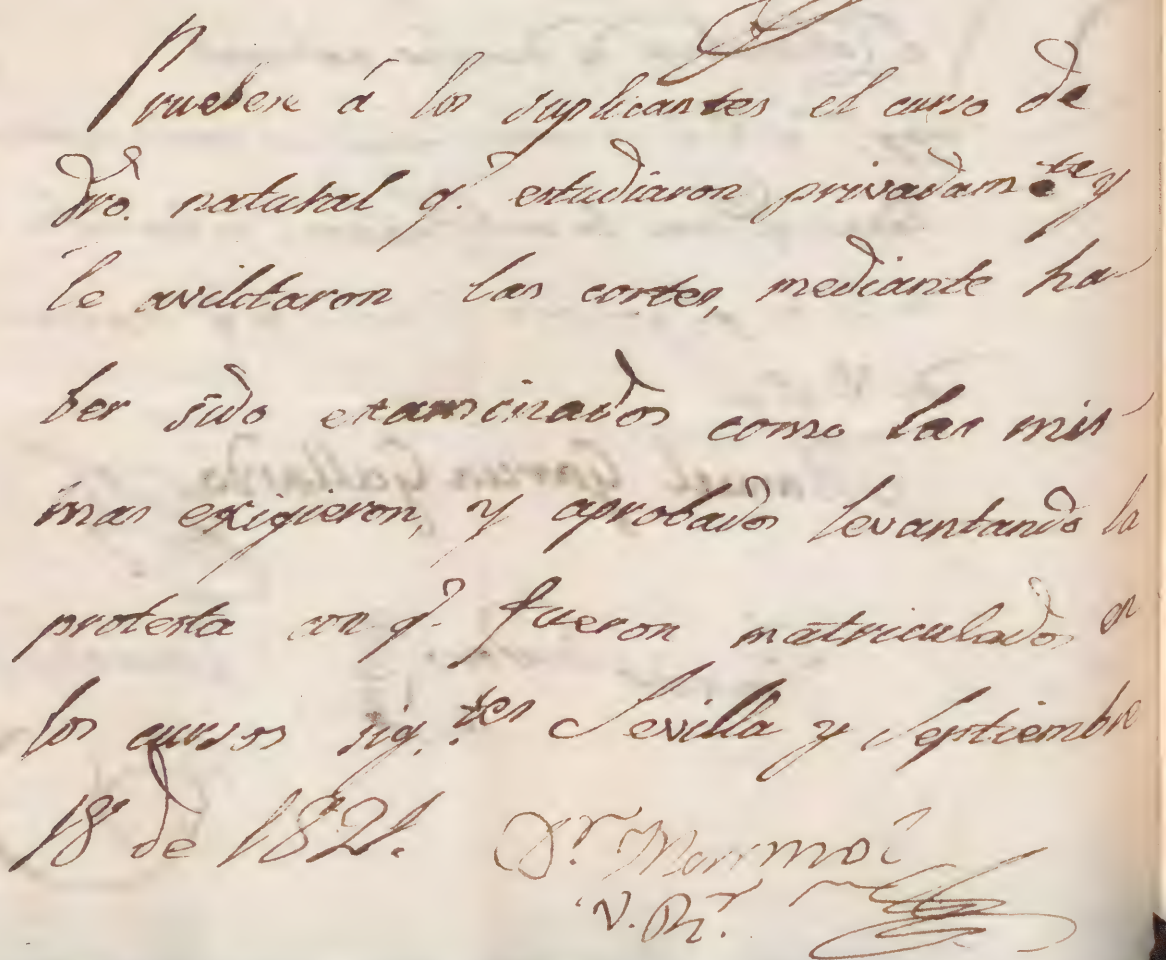 Pruebese á los suplicantes el curso de
dro. natural q.ᵉ estudiaron privadam.te y
le avilitaron las cortes, mediante ha
ber sido examinados como las mis
mas exigieron, y aprobados levantando la
protesta con q.ᵉ fueron matriculados en
los cursos sig.tes Sevilla y Septiembre
18 de 1821.
D.r Marmol
V. Rr.